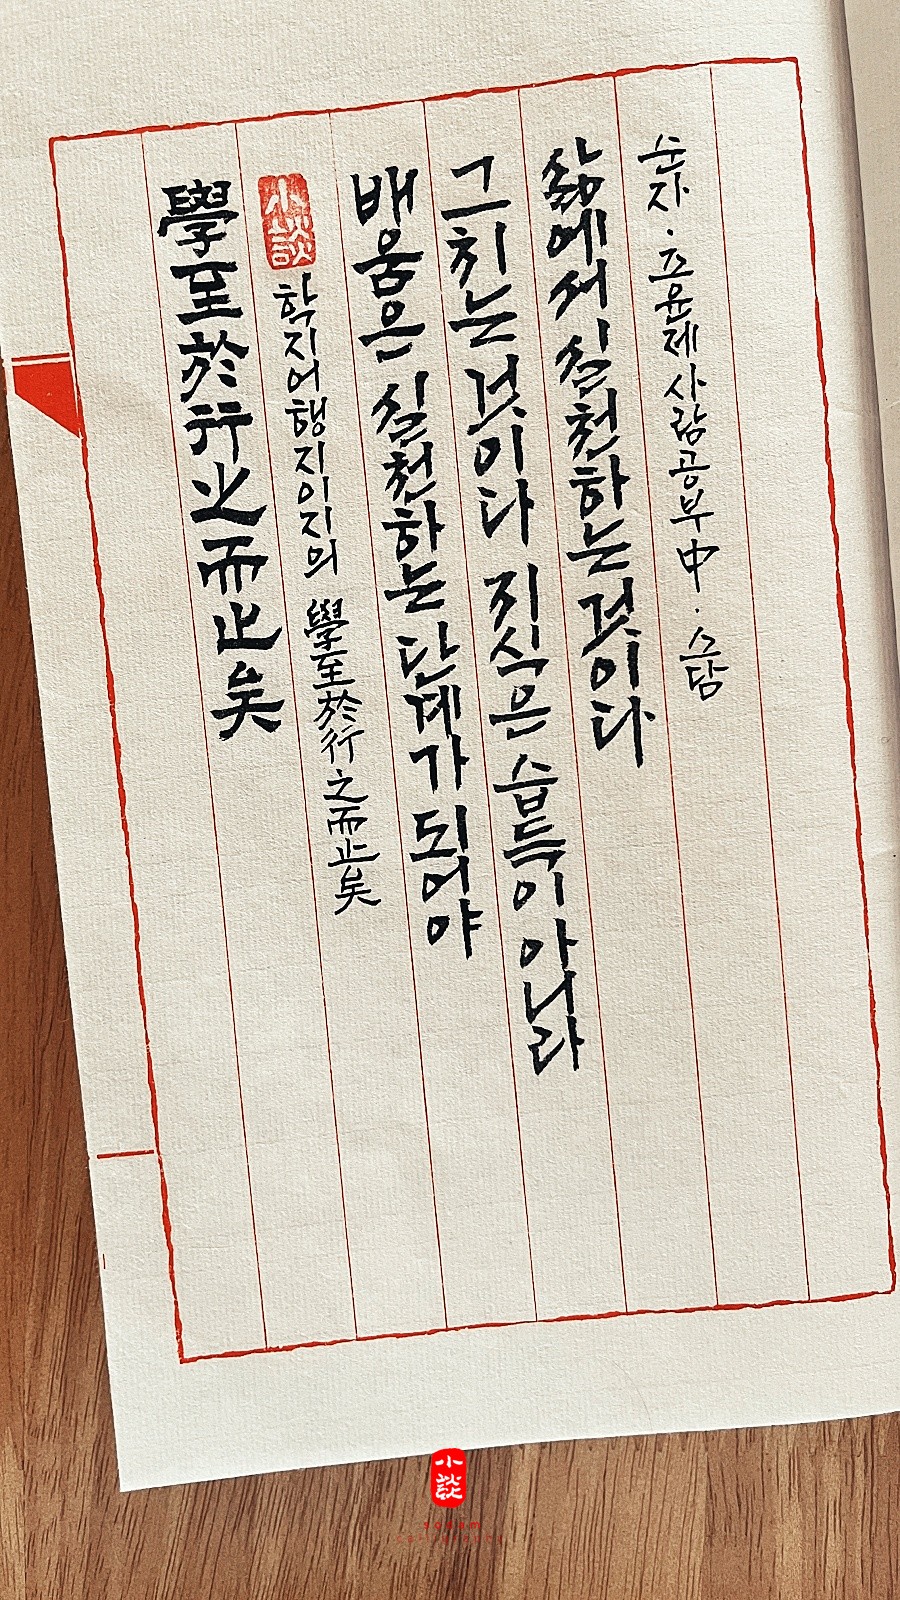 學至於行之而止矣
小談
학지어행지이지의 學至於行之而止矣
배움은 실천하는 단계가 되어야
그치는 것이다 지식은 습득이 아니라
삶에서 실천하는 것이다
순자 · 조윤제 사람공부 中 · 소담
小談
sodam